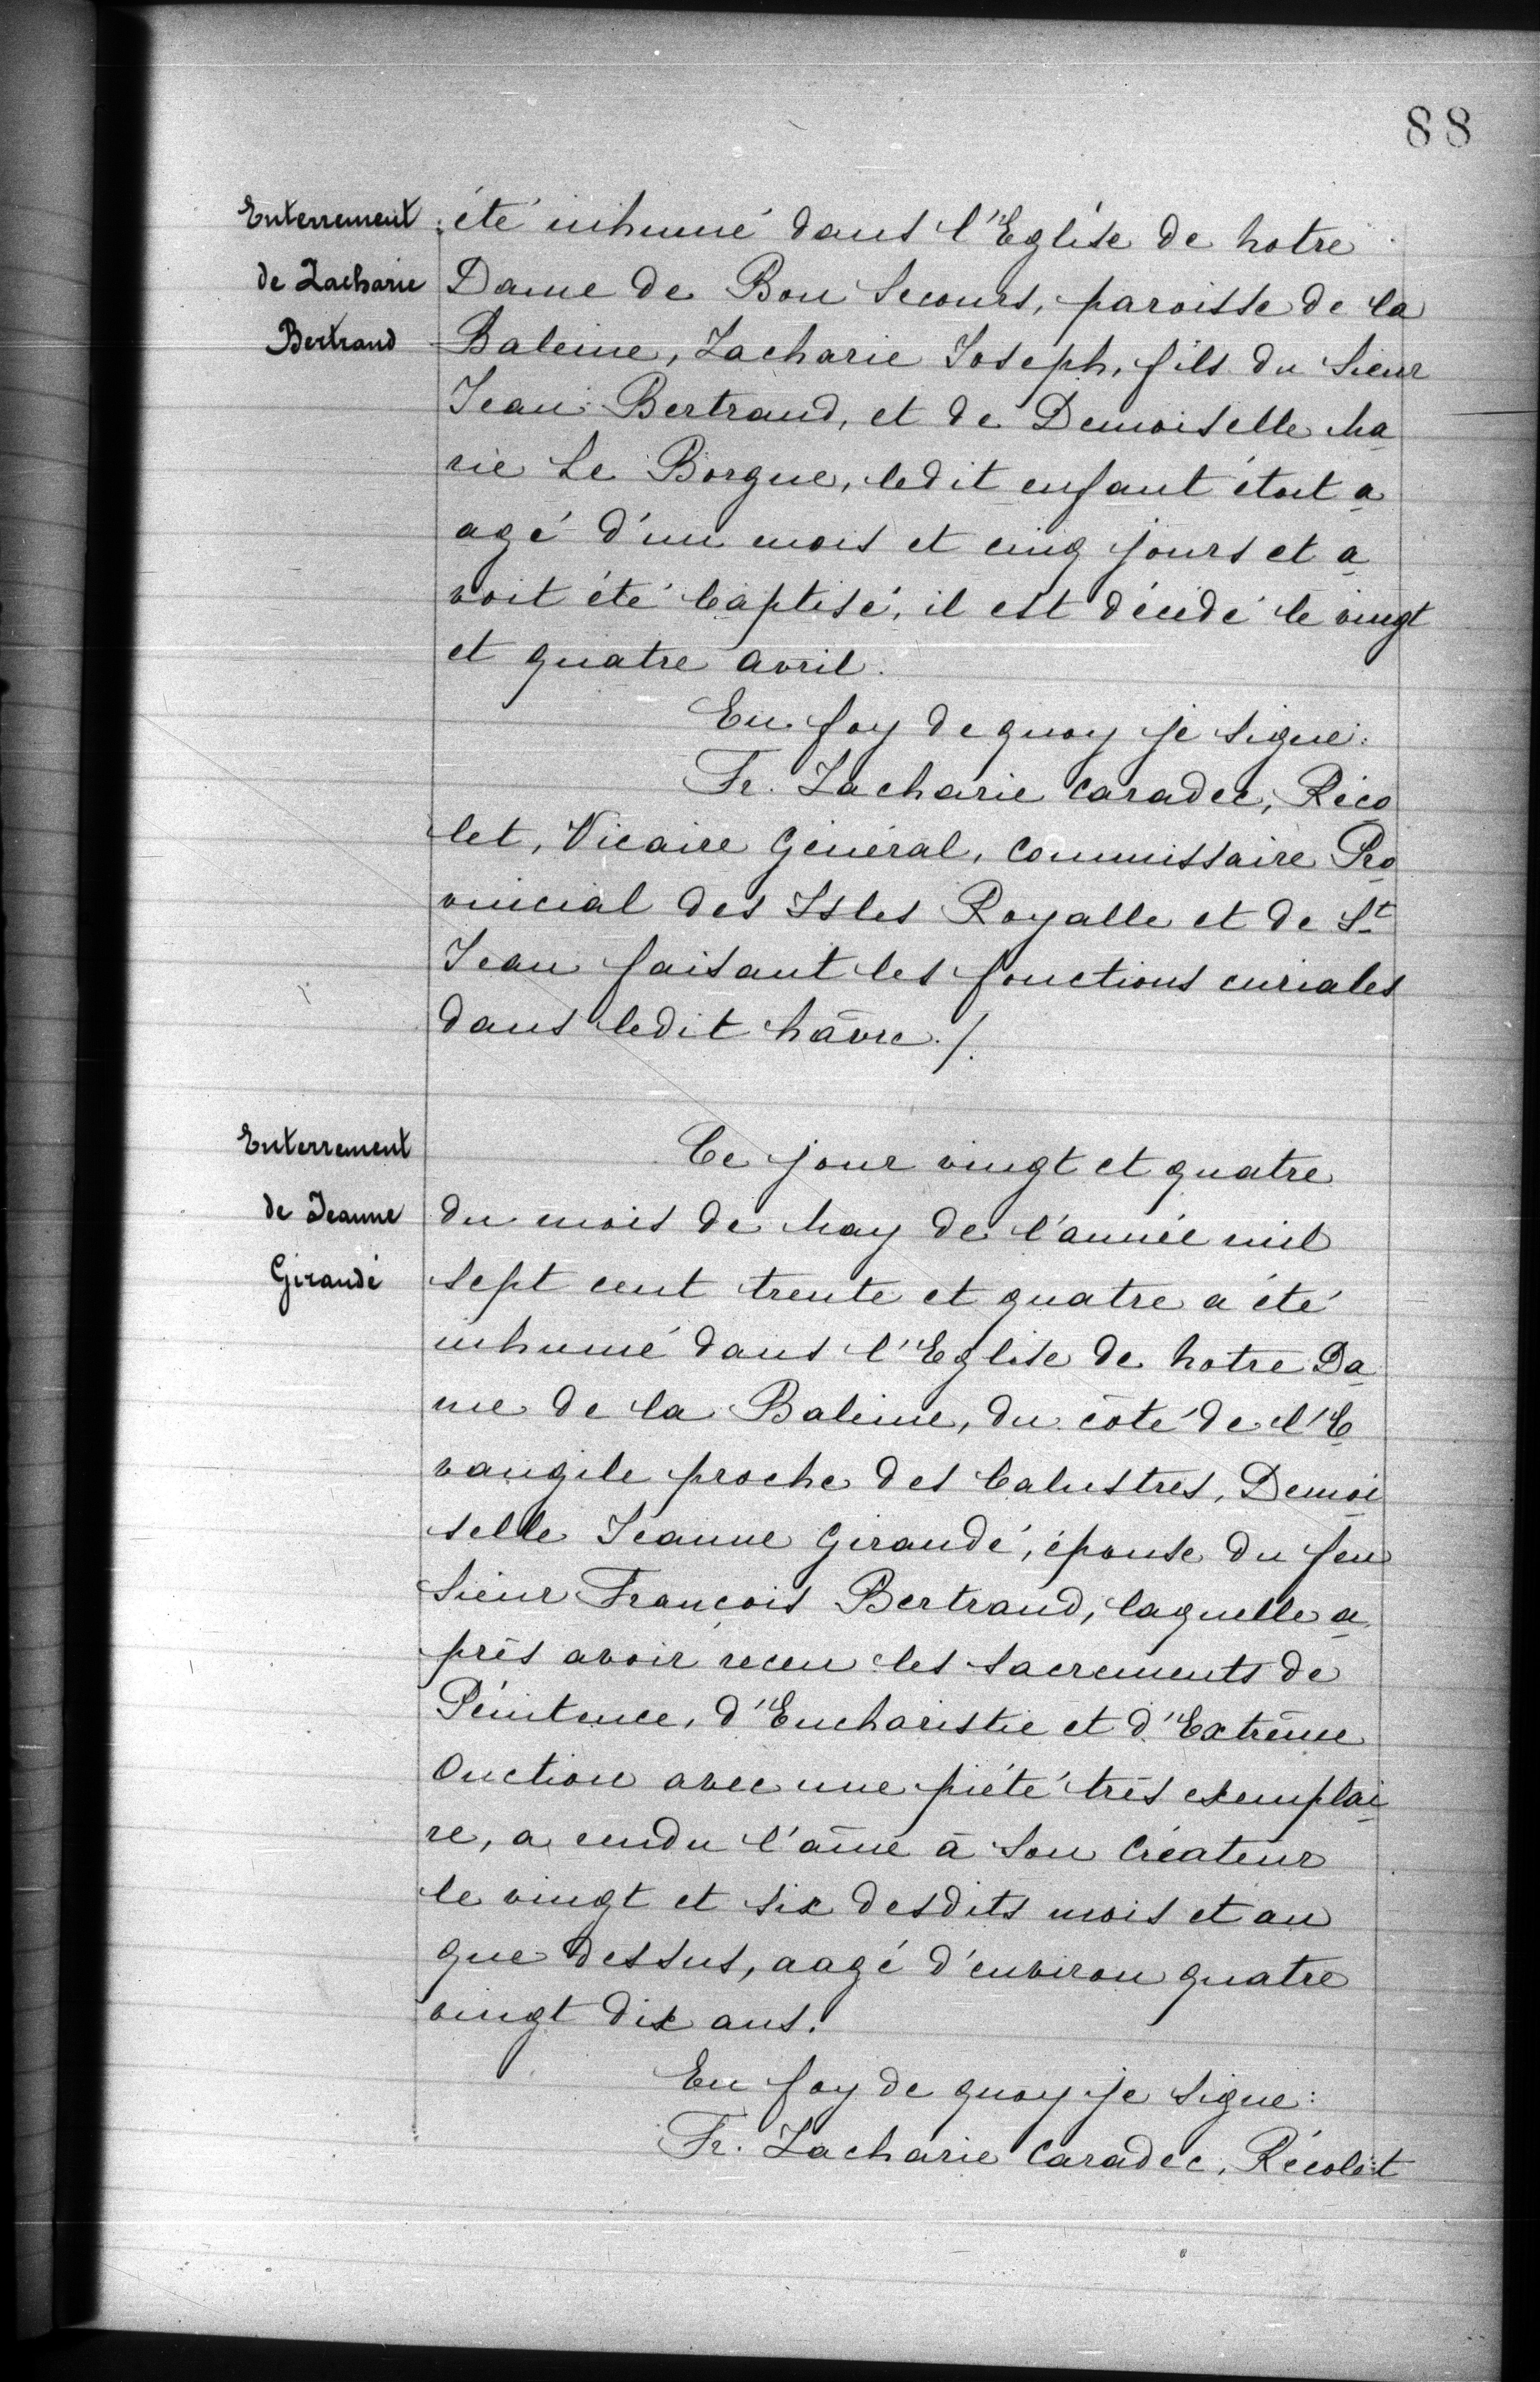 88
Enterrement
de Zacharie
Bertrand
été inhumé dans l'Eglise de Notre
Dame de Bon Secours, paroisse de la
Baleine, Zacharie Joseph, fils du Sieur
Jean Bertrand, et de Demoiselle Ma
rie Le Borgne, ledit enfant étoit a
agé d'un mois et cinq jours et a
voit été baptisé, il est décédé le vingt
et quatre avril.
En foy de quoy je signe:
Fr. Zacharie Caradec, Réco
let, Vicaire Général, Commissaire Pro
vincial des Isles Royalle et de St
Jean faisant les fonctions curiales
dans ledit hâvre./.
Enterrement
de Jeanne
Giraudé
Ce jour vingt et quatre
du mois de May de l'année mil
sept cent trente et quatre a été
inhumé dans l'Eglise de Notre Da
me de la Baleine, du côté de l'E
vangile proche des balustres, Demoi
selle Jeanne Giraudé, épouse du feu
Sieur François Bertrand, laquelle a
près avoir receu les sacrements de
Pénitence, d'Eucharistie et d'Extrême
Onction avec une piété très exemplai
re, a rendu l'âme à son Créateur
le vingt et six desdits mois et an
que dessus, aagé d'environ quatre
vingt dix ans.
En foy de quoy je signe:
Fr. Zacharie Caradec, Récolet